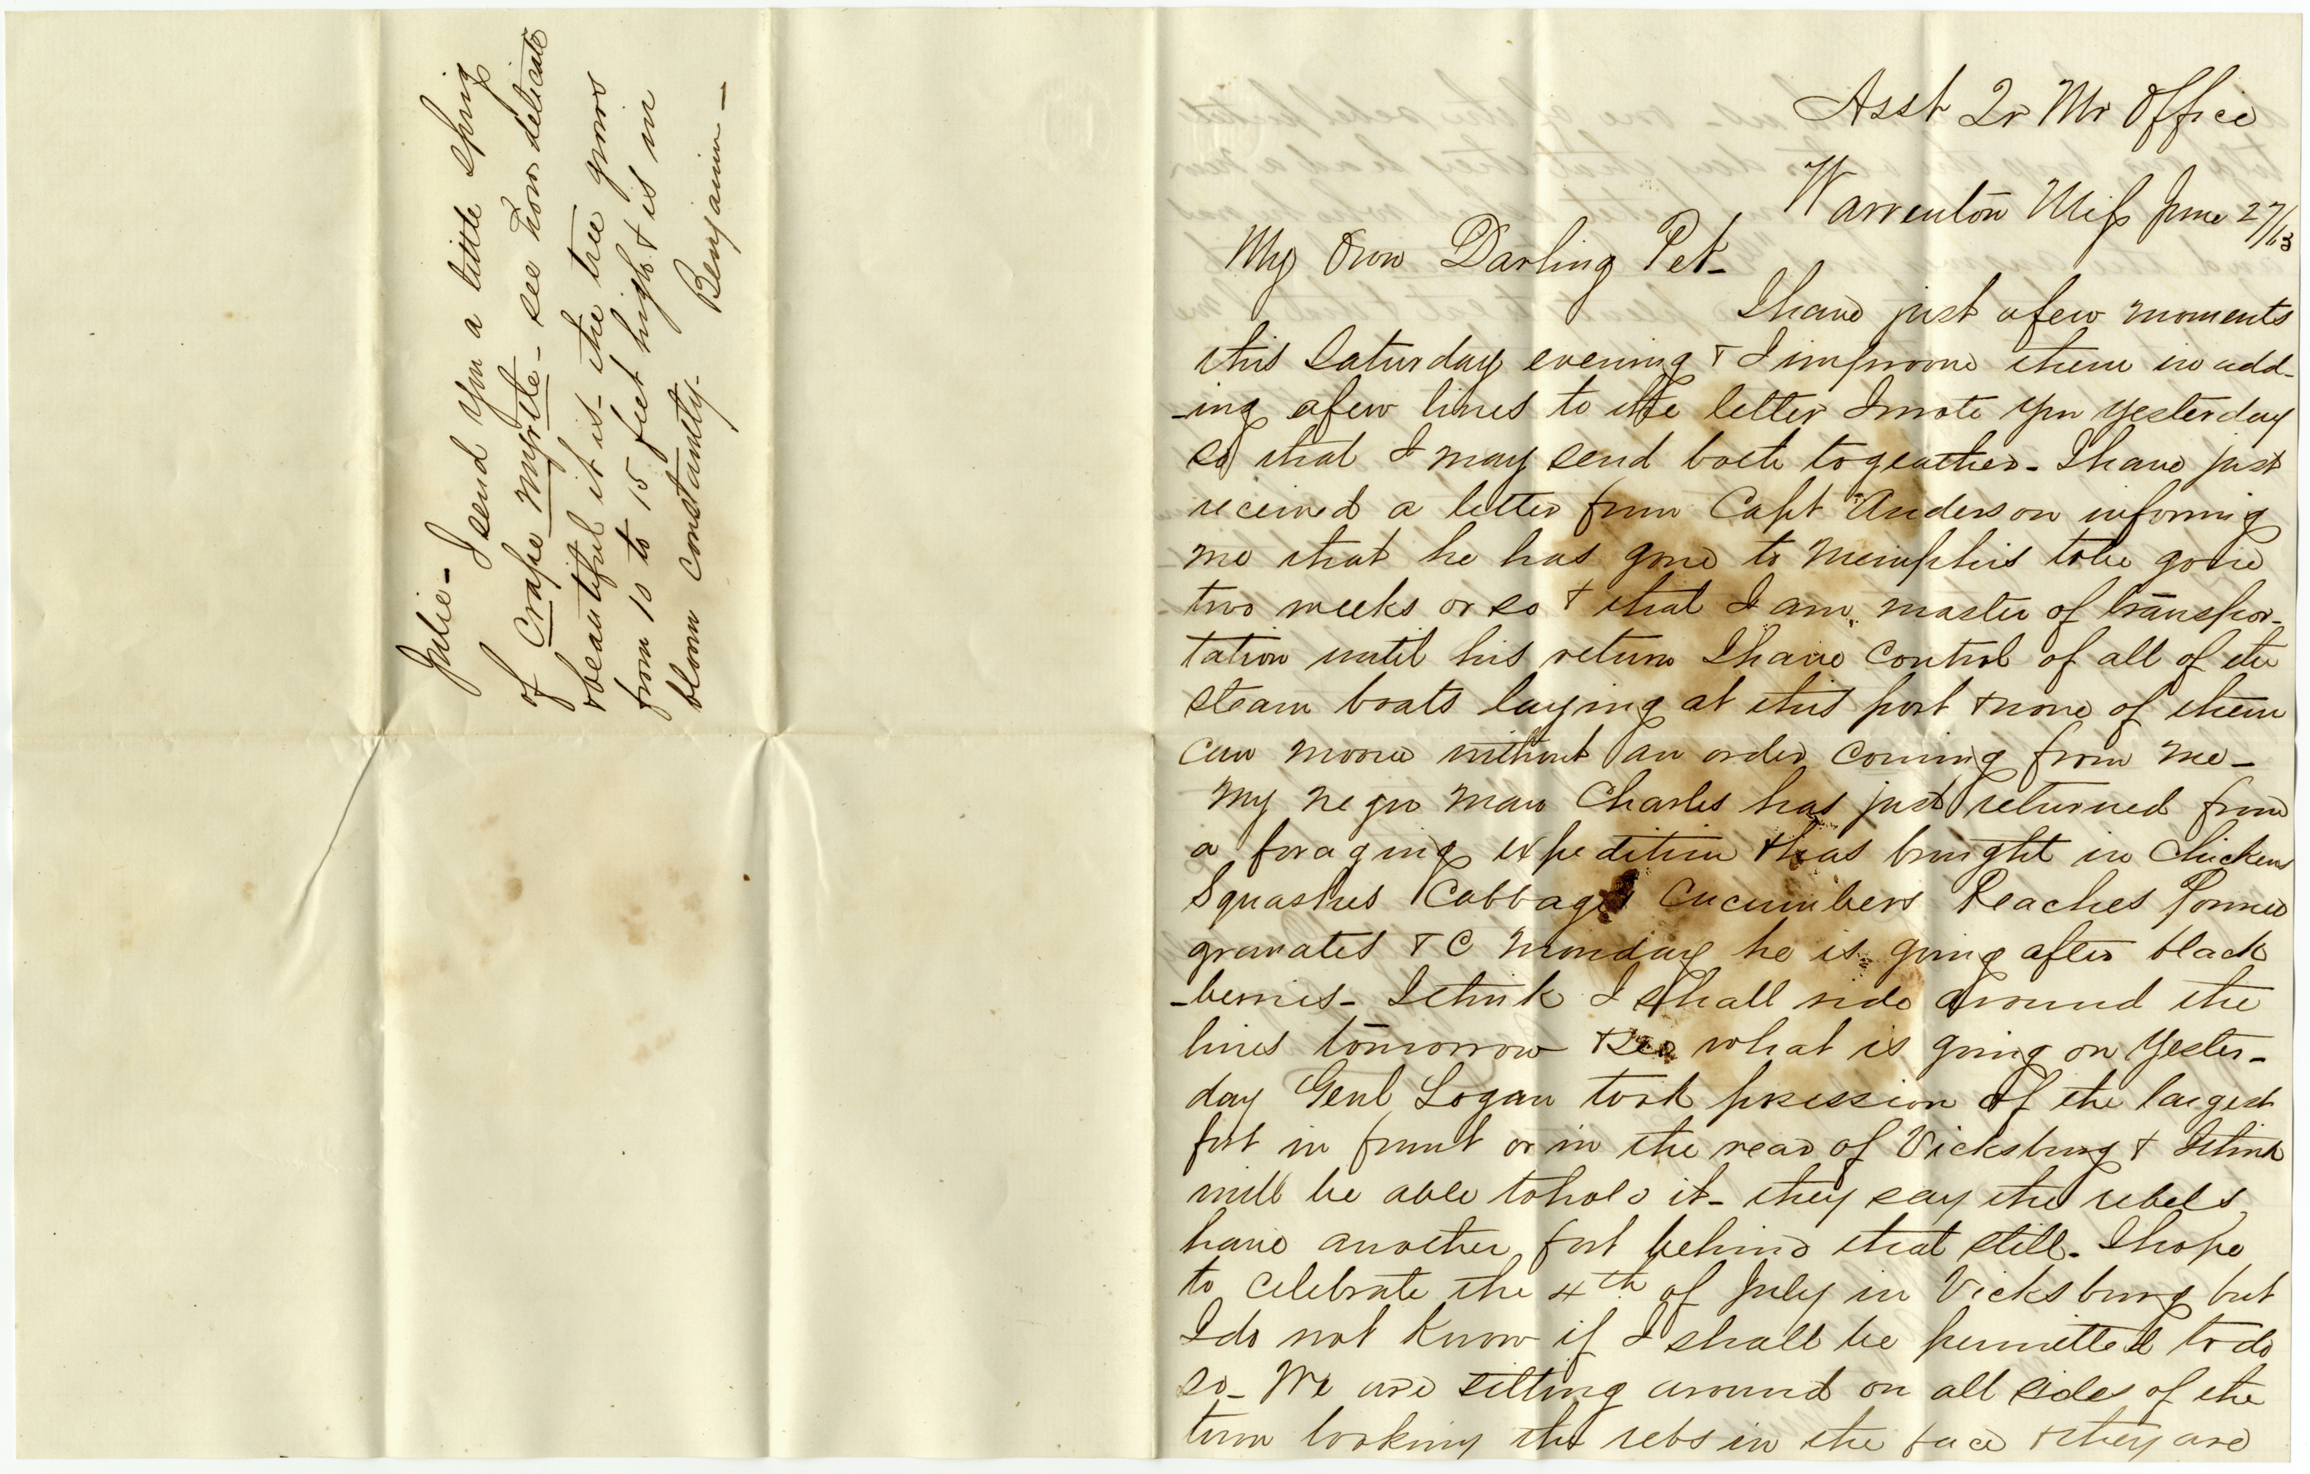 Asst Qr Mr Office
Warrenton Miss June 27/63
My Own Darling Pet-
I have just a few moments
this Saturday evening & I improove them in add-
-ing a few lines to the letter I wrote you yesterday
so that I may send both togeather- I have just
received a letter from Capt Anderson informing
me that he has gone to Memphis to be gone
two weeks or so & that I am master of transpor-
tation until his return I have control of all of the
steam boats laying at this port & none of them
can moove without an order coming from me-
My negro man Charles has just returned from
a foraging expedition & has brought in Chickens
Squashes Cabbages Cucumbers Peaches Pome
granates & C Monday he is going after black
-berries- I think I shall ride around the
lines tomorrow & see what is going on yester-
day Genl Logan took posession of the largest
fort in front or in the rear of Vicksburg & I think
will be able to hold it- they say the rebels
have another fort behind that still- I hope
to celebrate the 4th of July in Vicksburg but
I do not know if I shall be permitted to do
so- We are sitting around on all sides of the
town looking the rebs in the face & they are
Julie-
I send you a little sprig
of Crape Myrtle- see how delicate
& beautiful it is- the tree grows
from 10 to 15 feet high & is in
bloom constantly-
Benjamin-